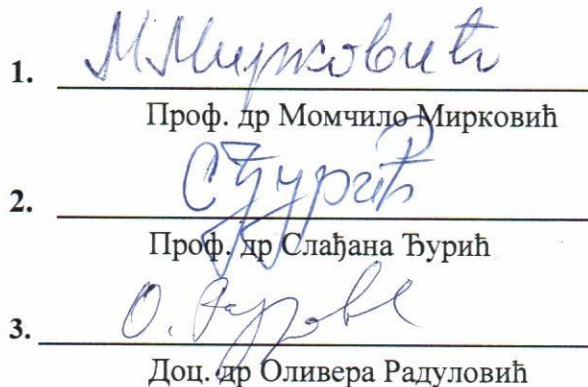 М Мирковић
1.
Проф. др Момчило Мирковић
С Ђурић
2.
Проф. др Слађана Ђурић
О.
3.
Доц. др Оливера Радуловић